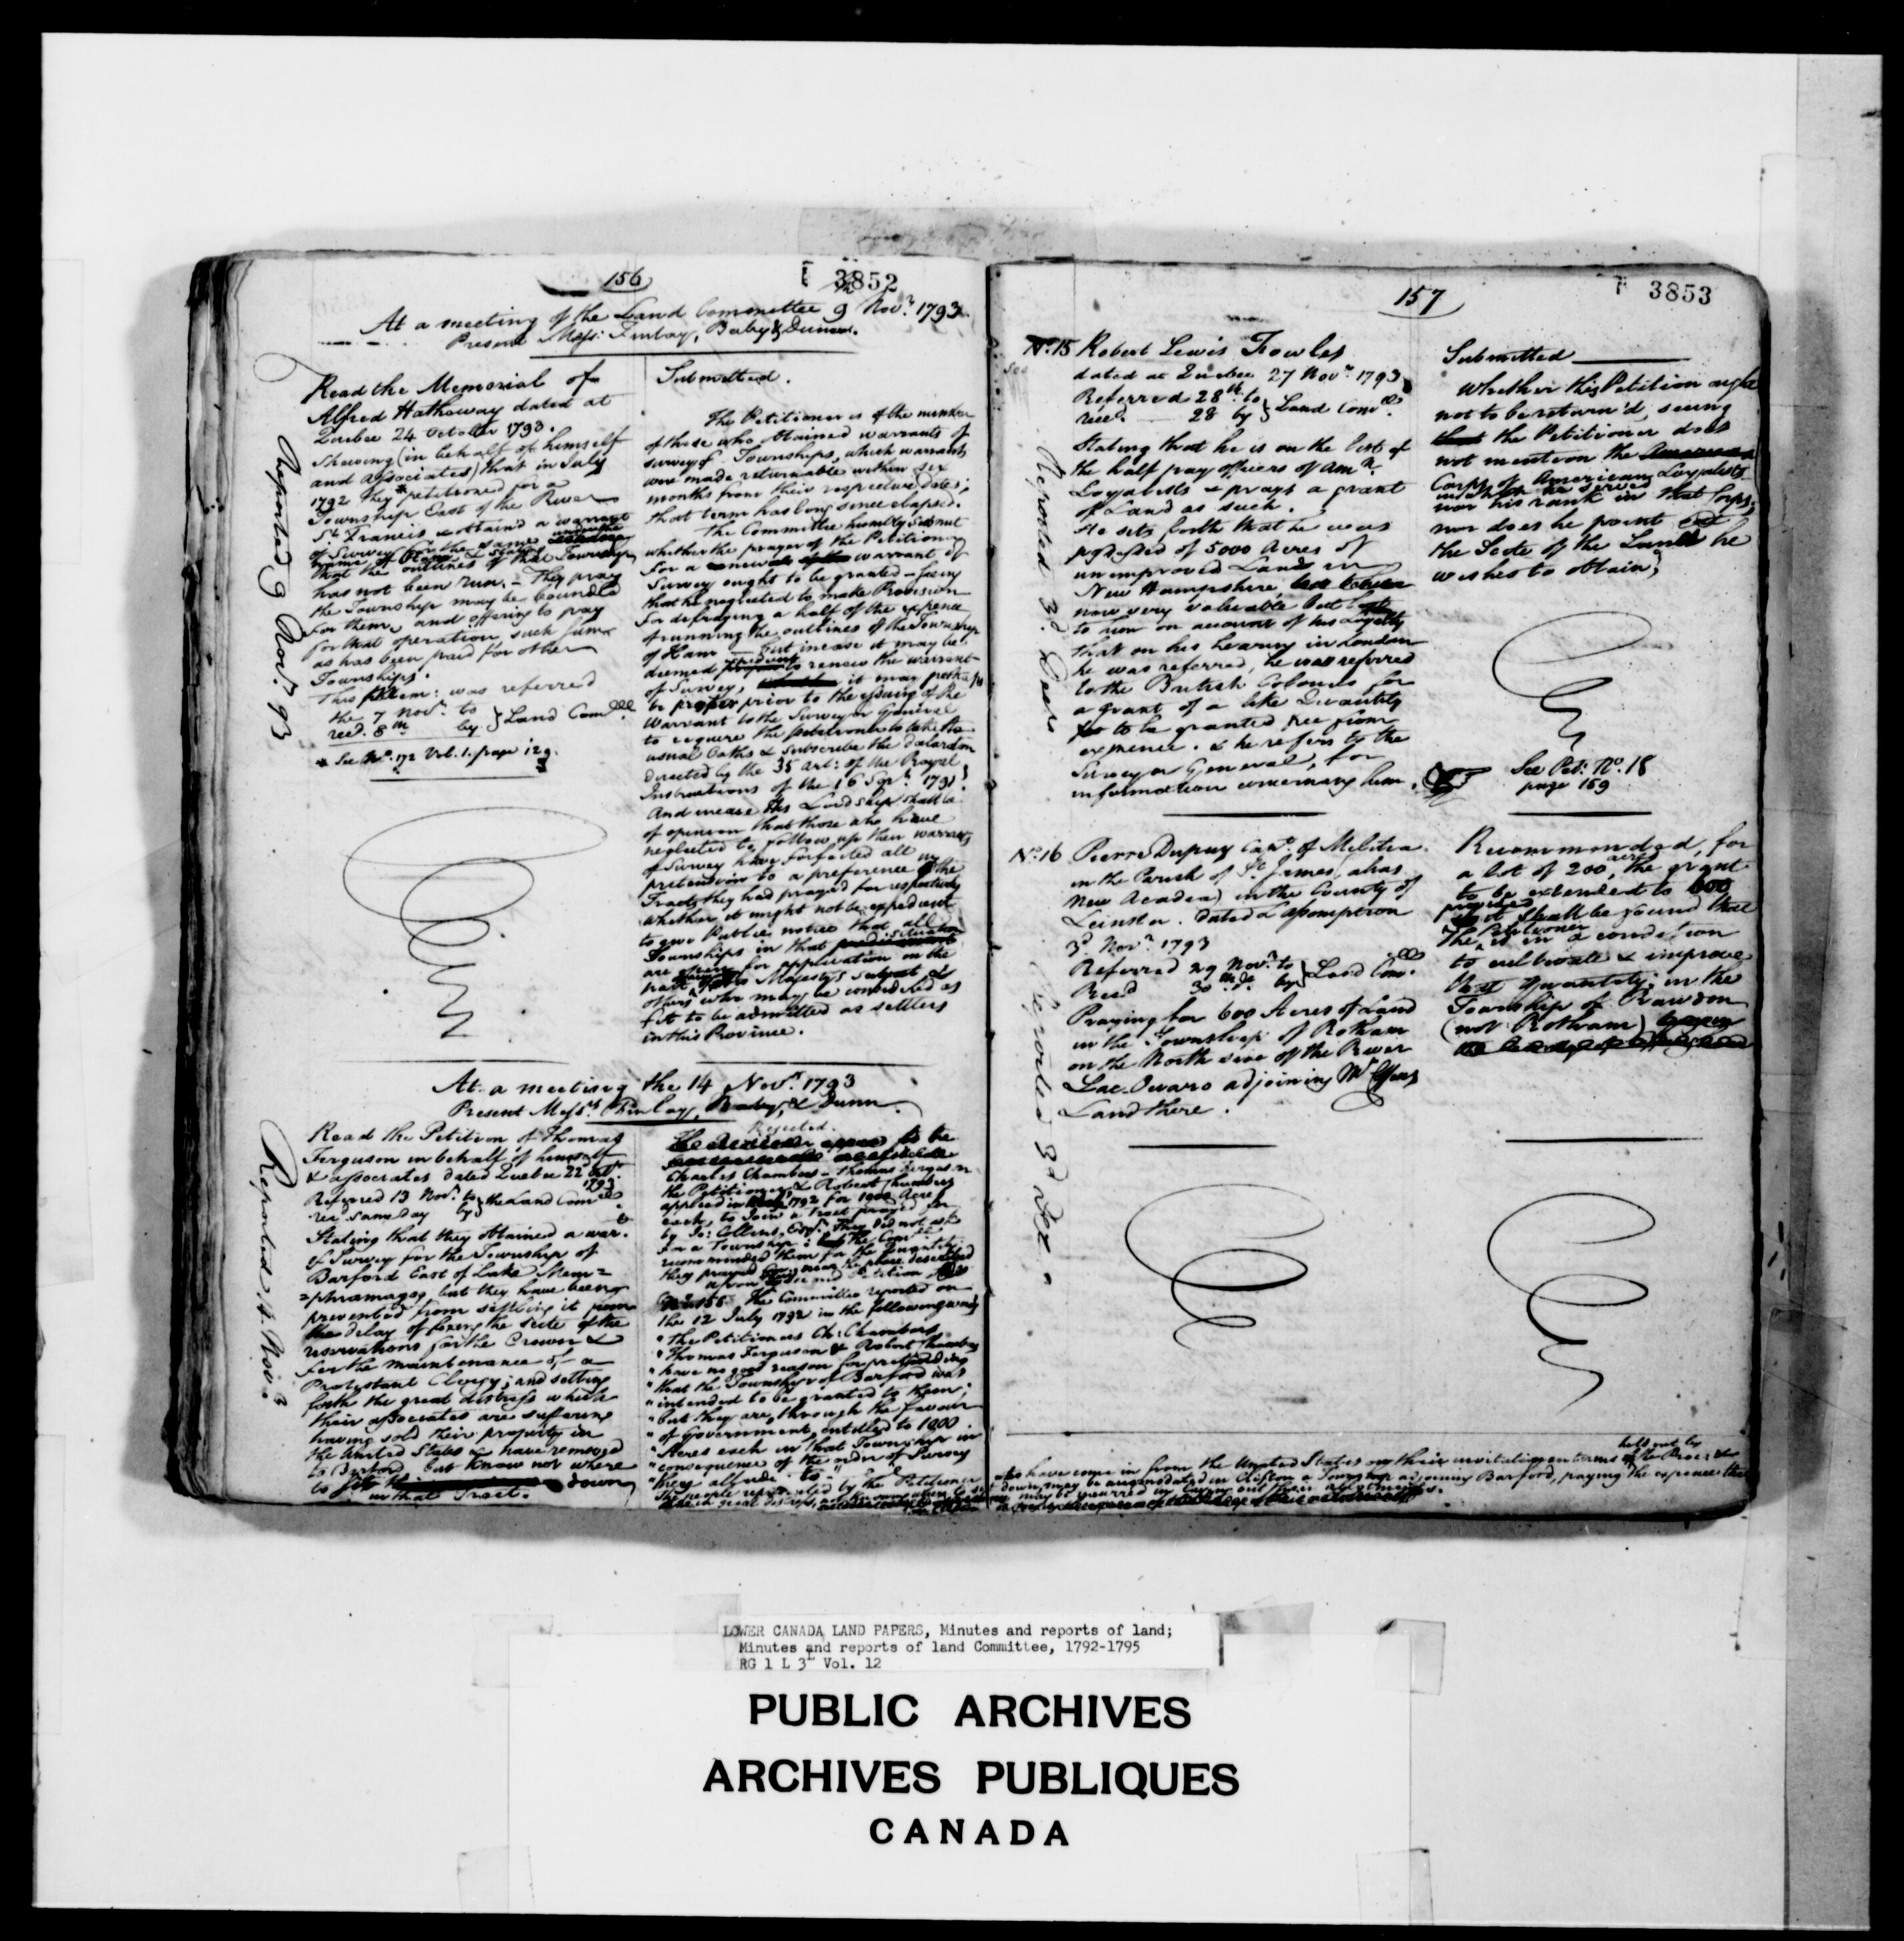 156
3852
At a meeting of the Land Committee 9 Novr. 1793
Present Messrs. Finlay, Baby & Dunn.
Reported 9 Novr. 93
Read the Memorial of
Alfred Hathaway dated at
Quebec 24 October 1793.
Shewing (in behalf of himself
and associates) that in July
1792 they * petitioned for a
Township East of the River
St. Francis & obtain'd a warrant
of Survey for the same under the
name of Ham & stating
that the outlines of that Township
has not been run. — They pray
the Township may be bounded
for them, and offering to pray
for that operation such sums
as has been paid for other
Townships.
This Mem: was referred
the 7 Novr. to } Land Comee.
recd. 8th by
* See No. 172 Vol. 1. page 129.
Submitted.
The Petitioner is of the number
of those who obtained warrants of
survey of Townships, which warrants
were made returnable within six
months from their respective dates;
that term has long since elapsed.
The Committee humbly submit
whether the prayer of the Petitioner
for a renewal of the warrant of
Survey ought to be granted – seeing
that he neglected to make Provision
for defraying a half of the expence
of running the outlines of the Township
of Ham — but incase it may be
deemed to renew the warrant
of Survey, it may perhaps
be proper prior to the issuing of the
Warrant to the Surveyor General
to require the petitioner to take the
usual Oaths & subscribe the declaration
directed by the 35 art: of the Royal
Instructions of the 16 Sepr. 1791.
And incase His Lordship shall be
of opinion that those who have
neglected to follow up their warrants
of Survey have forfeited all
pretension to a preference in the
Tracts they had prayed for respectively
whether it might not be expedient
to give Public notice that all
Townships in that situation
are open for application on the
part of his Majesty's subjects &
others who may be considered as
fit to be admitted as settlers
in this Province.
At a meeting the 14 Novr. 1793
Present Messrs. Finlay, Baby, & Dunn.
Reported 14 Nov. 93
Read the Petition of Thomas
Ferguson in behalf of himself
& associates dated Quebec 22 Octr.
1793.
Referred 13 Novr. to } the Land Comee.
rec'd same day by
Stating that they obtained a war.
of Survey for the Township of
Barford East of Lake Mem=
=phramagog but they have been
prevented from settling it from
the delay of fixing the scite of the
reservations for the Crown &
for the maintenance of a
Protestant Clergy; and setting
forth the great distress which
their associates are suffering
having sold their property in
the United States & have removed
to Barford but know not where
to down
in that Tract.
Rejected.
Charles Chambers – Thomas Ferguson
the Petitioner, & Robert Chambers
applied in 1792 for 1000 Acres
each, to join a Tract prayed for
by Jo: Collins, Esqr. They did not ask
for a Township: the Comee.
recommended them for the quantity
they prayed for, near the place described
upon Petition
No. 158 The Committee reported on
the 12 July 1792 in the following way
"The Petitioners Ch: Chambers
"Thomas Ferguson & Robert Chambers
"have no good reason for pretending
"that the Township of Barford was
"intended to be granted to them;
"but they are, through the favour
"of Government entitled to 1000
"Acres each in that Township in
"consequence of the order of Survey
"they allude to."
The people represented by the Petitioner
157
3853
No. 15 Robert Lewis Fowler
dated at Quebec 27 Novr. 1793
Referred 28th. to } Land Comee.
recd. 28 by
Reported 3d. Decr.
Stating that he is on the list of
the half pay officers of Amn.
Loyalists & prays a grant
of Land as such.
He sets forth that he was
possessed of 5000 Acres of
unimproved Lands in
New Hampshire,
now very valuable but lost
to him on account of his Loyalty
that on his hearing in London
he was referred, he was referred
to the British Colonies for
a grant of a like Quantity
to be granted free from
expence. & he refers to the
Surveyor General, for
information concerning him.
Submitted
Whether this Petition ought
not to be return'd, seeing
the Petitioner does
not mention the
Corps of American Loyalists
in which he served
nor his rank in that Corps,
nor does he point out
the Scite of the Lands he
wishes to obtain;
See Pet: No. 18
page 159
No. 16 Pierre Dupuy Capt. of Militia
in the Parish of St. James, alias
New Acadia) in the County of
Leinster. dated Lassomption
3d Novr. 1793
Referred 29 Novr. to } Land Comee.
Recd 30 do. by
Reported 3d Decr.
Praying for 600 Acres of Land
in the Township of Rotham
on the North side of the River
Lac Ouaro adjoining Mr.
Land there.
Recommended, for
a lot of 200 acres, the grant
to be extended to 600
provided it shall be found that
the Petitioner is in a condition
to cultivate & improve
that quantity; in the
Township of Rawdon
(not Rotham)
who have come in from the United States on their invitation on terms held out by the Proc:
down, may be accommodated in Clifton a Township adjoining Barford, paying the expence that
may be incurred in laying out their allotments.
LOWER CANADA LAND PAPERS, Minutes and reports of land;
Minutes and reports of land Committee, 1792-1795
RG 1 L 3L Vol. 12
PUBLIC ARCHIVES
ARCHIVES PUBLIQUES
CANADA